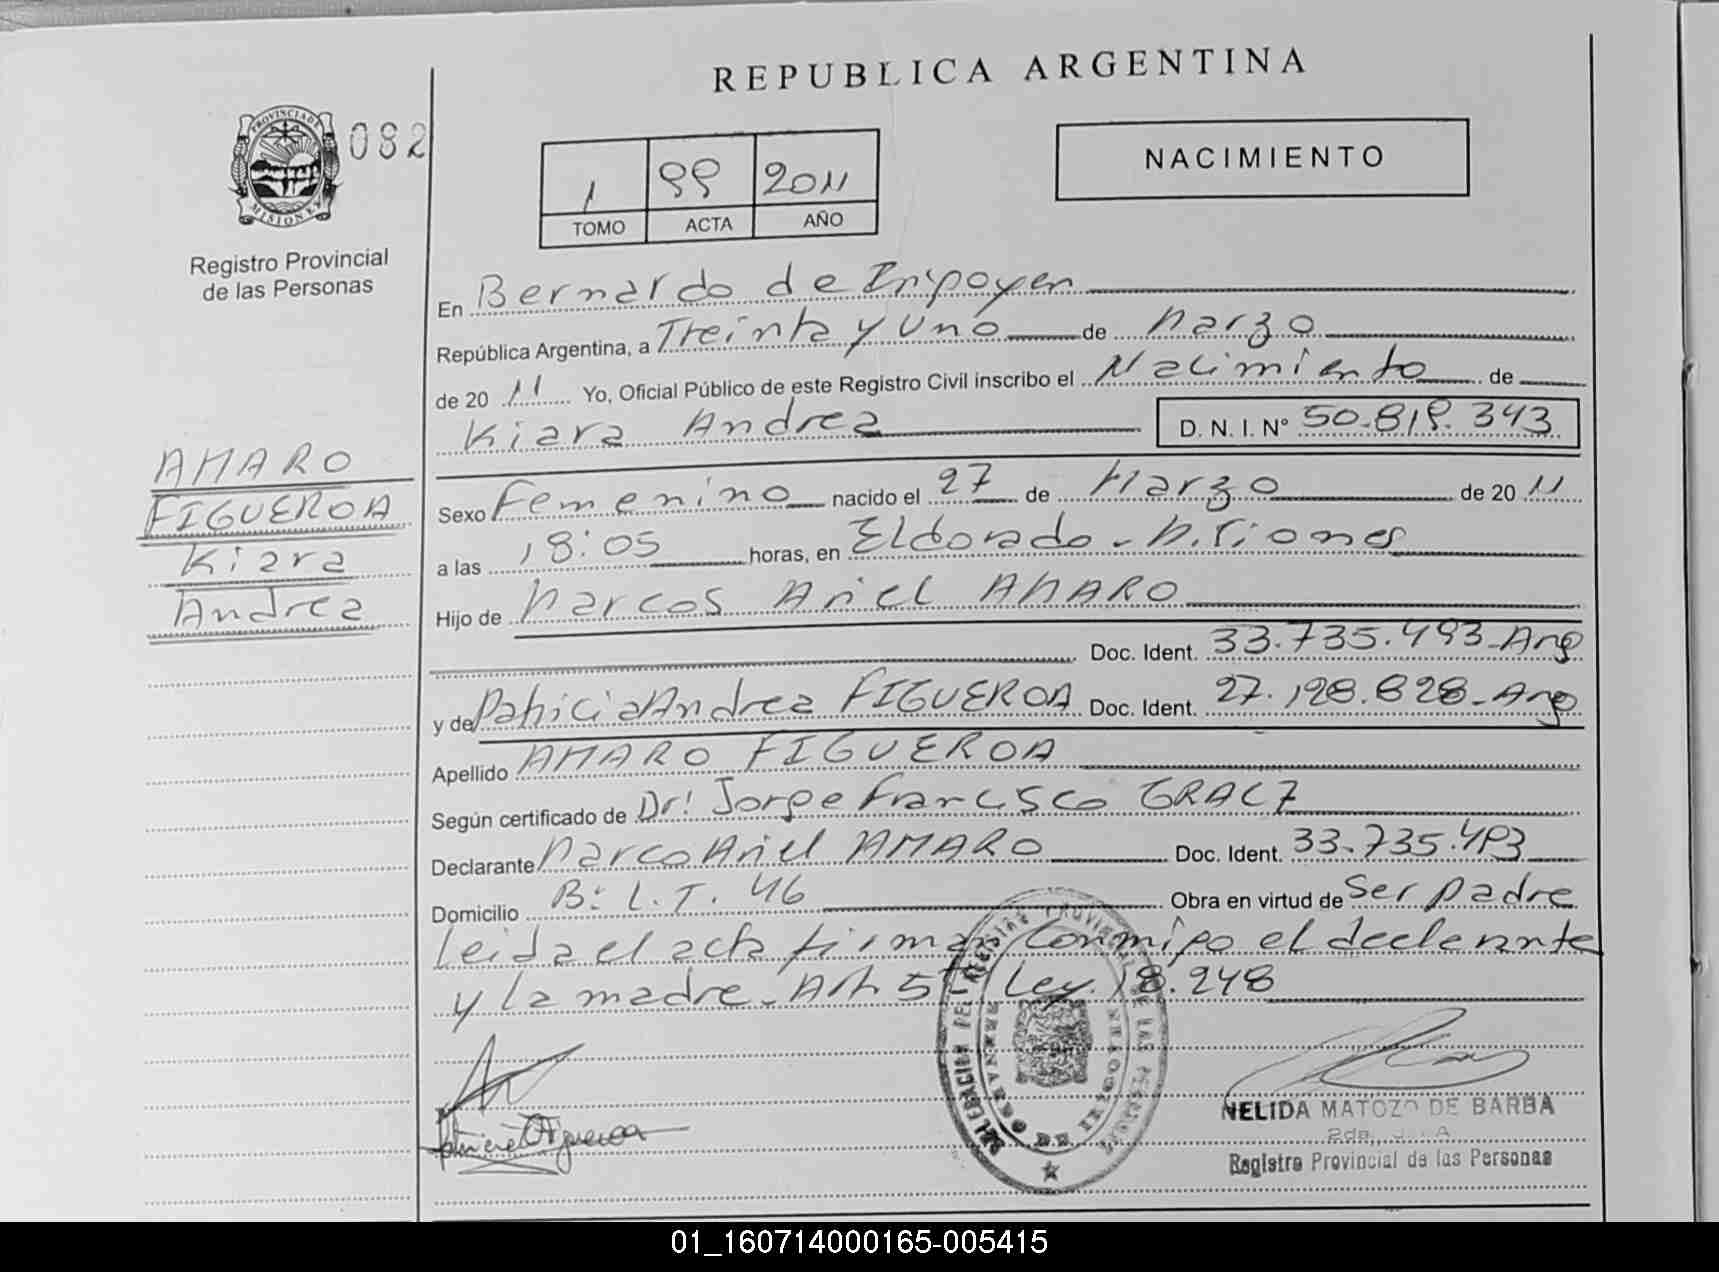 REPUBLICA ARGENTINA
PROVINCIA DE MISIONES
082
1 99 2011
TOMO ACTA AÑO
NACIMIENTO
Registro Provincial
de las Personas
En Bernardo de Irigoyen
República Argentina, a Treinta y Uno de Marzo
de 2011 Yo, Oficial Público de este Registro Civil inscribo el Nacimiento de
Kiara Andrea D. N. I. N° 50.819.343
AMARO
FIGUEROA
Kiara
Andrea
Sexo Femenino nacido el 27 de Marzo de 2011
a las 18:05 horas, en Eldorado - Misiones
Hijo de Marcos Ariel AMARO
Doc. Ident. 33.735.493 - Arg
y de Patricia Andrea FIGUEROA Doc. Ident. 27.198.828 - Arg
Apellido AMARO FIGUEROA
Según certificado de Dr: Jorge Francisco
Declarante Marco Ariel AMARO Doc. Ident. 33.735.493
Domicilio B: L.T. 46 Obra en virtud de Ser padre
Leida el acta firman conmigo el declarante
y la madre. Art. 5to Ley. 18.248
NELIDA MATOZO DE BARBA
Registro Provincial de las Personas
01_160714000165-005415